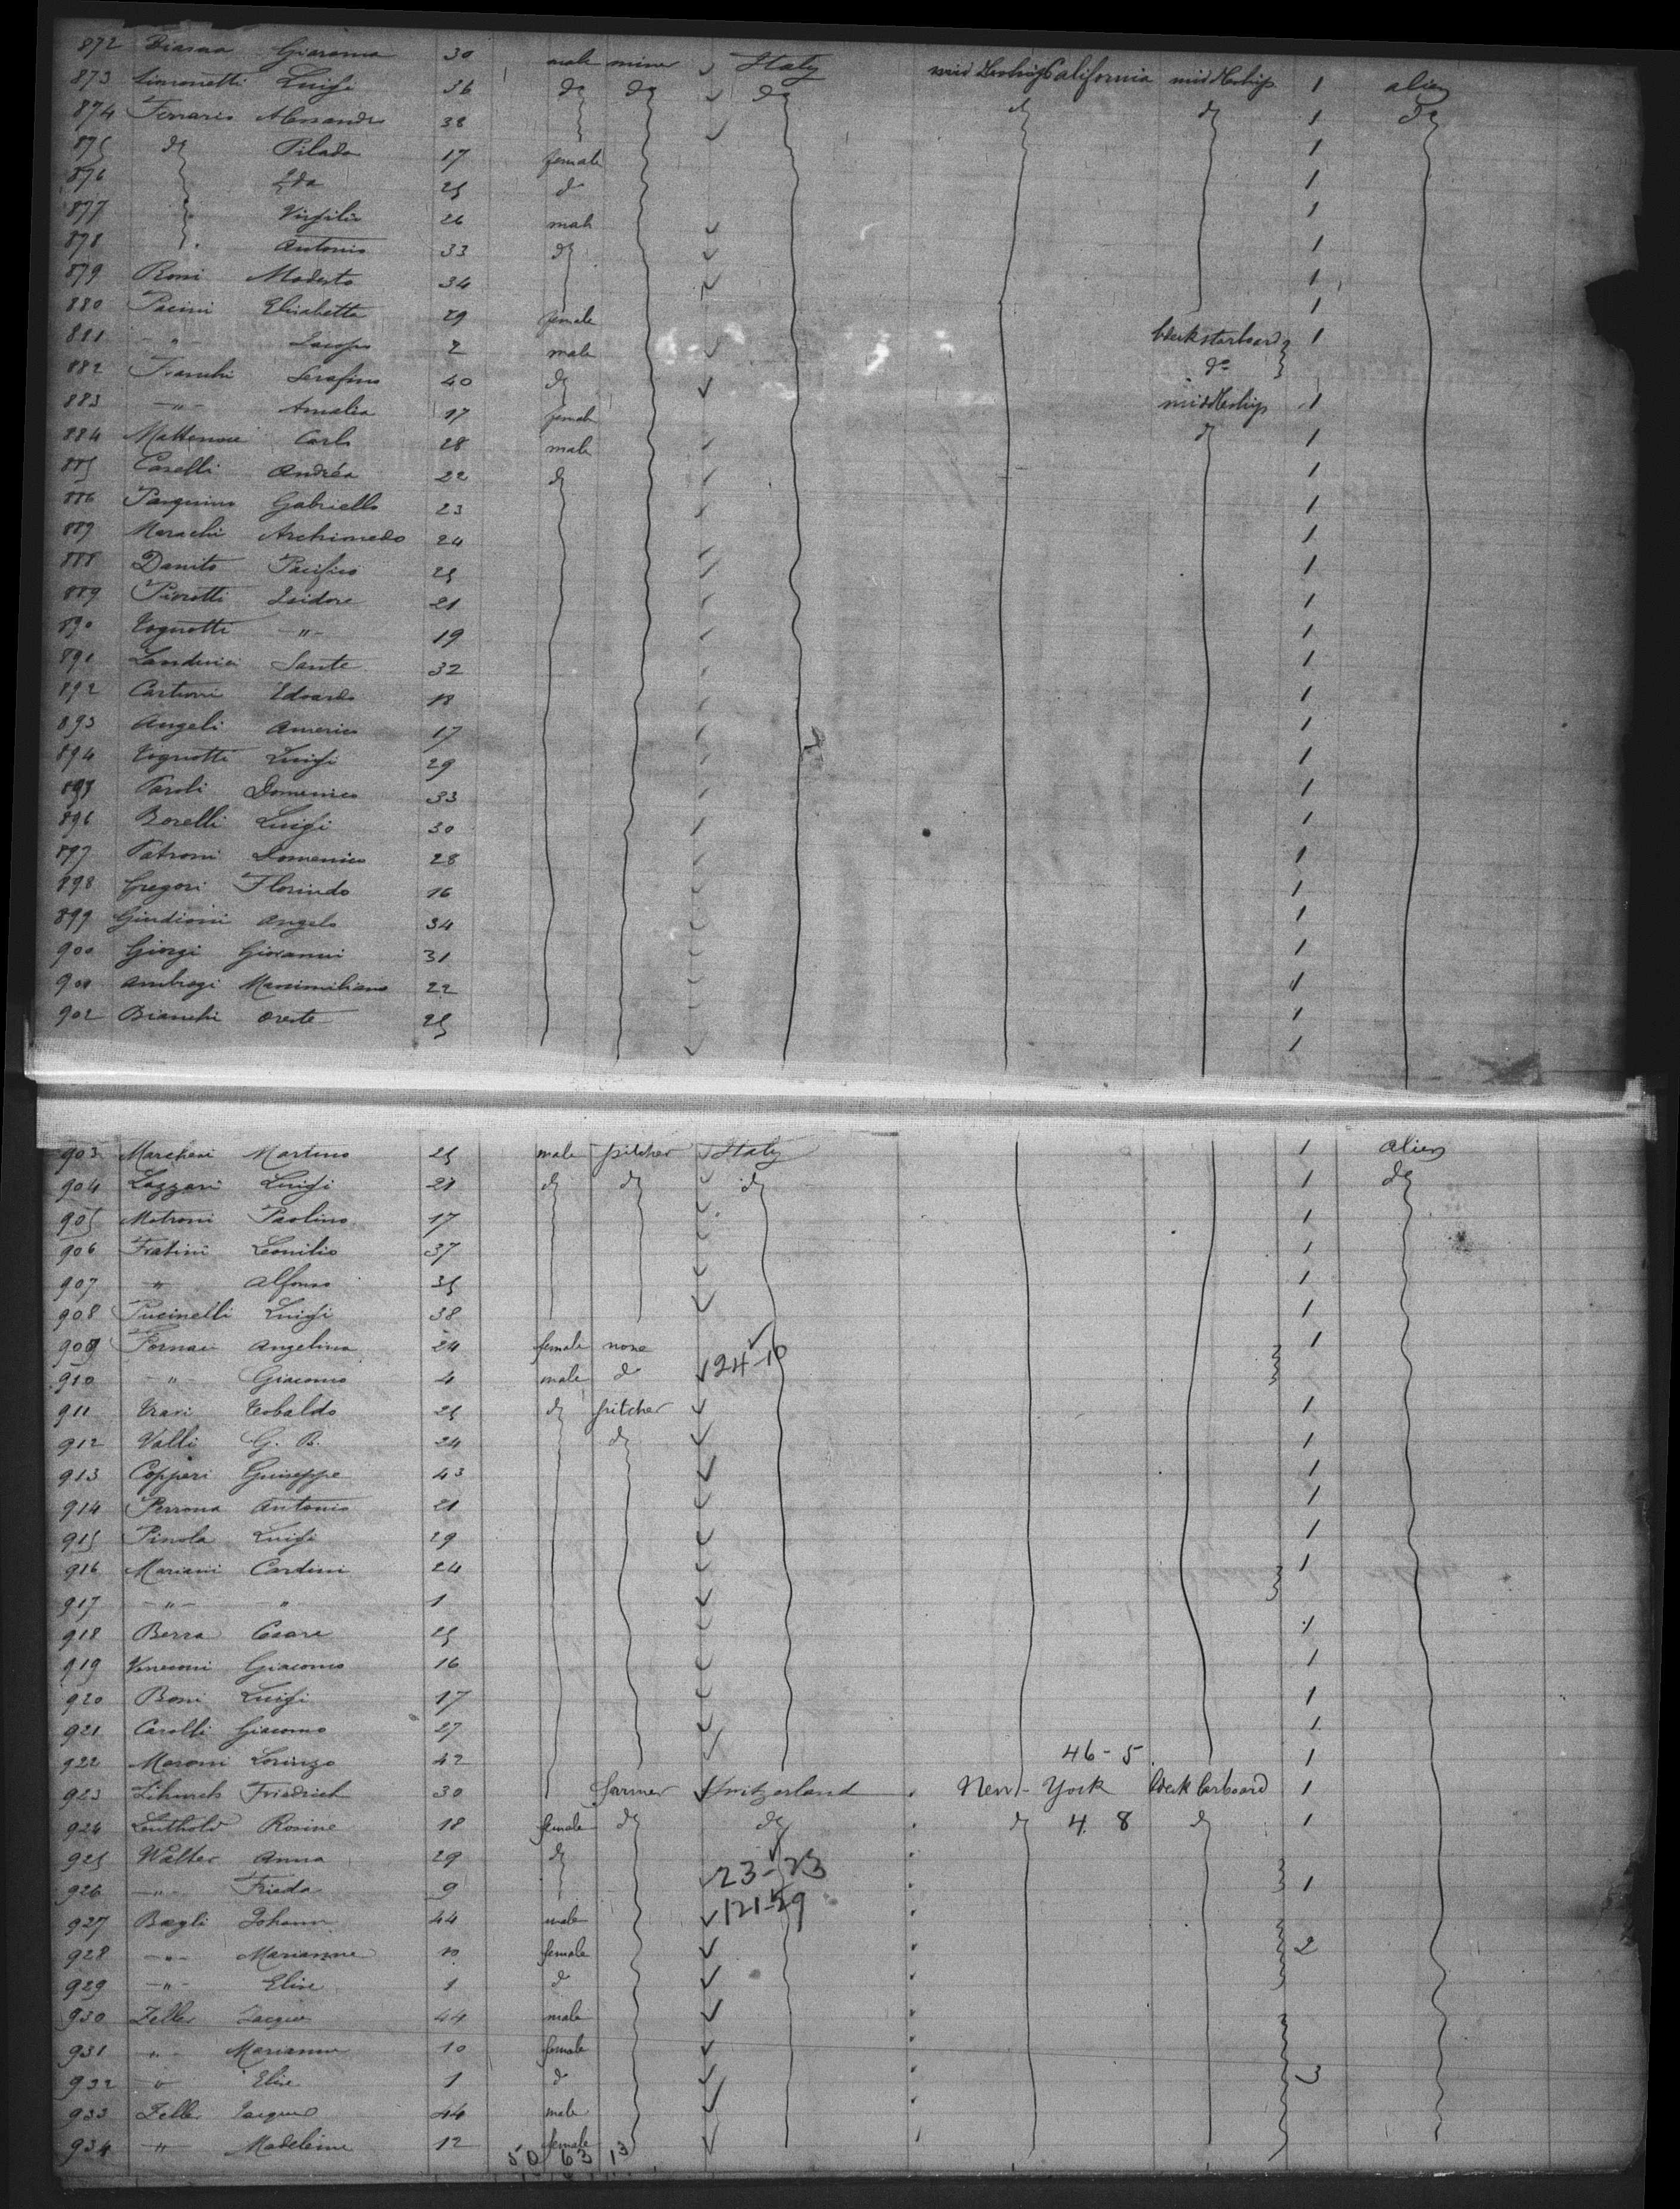 872 Giaroma 30 male miner Italy middleship California middleship 1 alien
873 Simonetti Luigi 36 do do do do do 1 do
874 Ferraris Alessandro 38 1
875 do Pilado 17 female 1
876 Eda 25 do 1
877 Virgilio 26 male
878 Antonio 33 do 1
879 Boni Modesto 34 1
880 Pacini Elisabetta 29 female 1
881 " Jacopo 2 male deck starboard 1
882 Franchi Serafino 40 do do
883 " Amalia 17 female middleship 1
884 Carlo 28 male do 1
885 Caselli Andréa 22 do 1
886 Pasquino Gabriello 23 1
887 Marachi Archimedo 24 1
888 Danito Pacifico 25 1
889 Pierotti Isidore 21 1
890 Tognotti " 19 1
891 Landucci Sante 32 1
892 Edoardo 18 1
893 Angeli Americo 17 1
894 Tognotti Luigi 29 1
895 Paroli Domenico 33 1
896 Borelli Luigi 30 1
897 Patroni Domenico 28 1
898 Gregori Florindo 16 1
899 Angelo 34 1
900 Giorgi Giovanni 31 1
901 Ambrogi Massimiliano 22 1
902 Bianchi Oreste 25 1
903 Marcheni Martino 25 male pitcher Italy 1 alien
904 Lazzari Luigi 21 do do do 1 do
905 Matroni Paolino 17 1
906 Fratini Leonilio 37 1
907 " Alfonso 35 1
908 Pucinelli Luigi 38 1
909 Fornaci Angelina 24 female none 1
910 " Giacomo 4 male do 24-10
911 Teobaldo 25 do pitcher 1
912 Valli G. B. 24 do 1
913 Copperi Guiseppe 43 1
914 Perrona Antonio 21 1
915 Pinola Luigi 29 1
916 Mariani Cardini 24 1
917 " " 1
918 Berra Cesare 25 1
919 Giacomo 16 1
920 Boni Luigi 17 1
921 Carolli Giacomo 27 1
922 Maroni Lorenzo 42 46-5 1
923 Friedrich 30 farmer Switzerland New-York deck larboard 1
924 Leuthold Rosine 18 female do do do 4 8 do 1
925 Walter Anna 29 do
926 " Frieda 9 23-23 1
927 Boegli Johann 44 male 121-29
928 " Marianne 10 female 2
929 " Elise 1 do
930 Zeller Jacques 44 male
931 " Marianne 10 female
932 " Elise 1 do 3
933 Zeller Jacques 44 male
934 " Madeleine 12 female
50 63 13